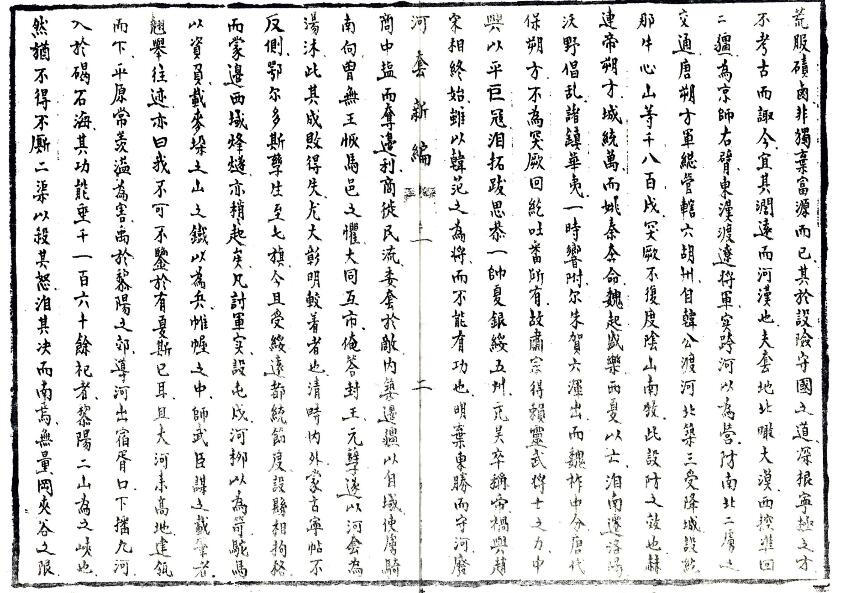 荒服磧鹵非獨棄富源而已其於設險守國之道深根寧極之才
不考古而諏今宜其濶遠而河漢也夫套地北瞰大漠西控準回
二疆為京師右臂東漢渡遼將軍實跨河以為營防南北二虜之
交通唐朔方軍總管轄六胡州自韓公渡河北築三受降城設
那牛心山等千八百戍突厥不復度陰山南牧此設防之效也赫
連帝朔方城統萬而姚秦奔命魏起盛樂西夏以亡洎南遷洛陽
沃野倡乱諸鎮華夷一時響附尔朱賀六渾出而魏祚中分唐代
保朔方不為突厥回紇吐番所有故肅宗得賴靈武將士之力中
興以平巨寇洎拓跋思恭一帥夏銀綏五州元昊卒稱帝禍與趙
宋相終始雖以韓范之為將而不能有功也明棄東勝而守河廢
河套新編 二
商中塩而奪邊利商徙民流委套於敵内築邊牆以自域使虜騎
南向曾無王恢馬邑之懼大同互市俺荅封王元孽遂以河套為
湯沐此其成敗得失尤大彰明較著者也清時内外蒙古寧帖不
反側鄂尔多斯孳生至七旗今且受綏遠都統節度設縣相拘格
而蒙邊西域烽燧亦稍起矣凡討軍實設屯戍河柳以為笴駝馬
以資負載麥垛之山之鐵以為兵帷幄之中師武臣謀之載筆者
翹舉往迹亦曰我不可不鑒於有夏斯已耳且大河素高地建瓴
而下平原常羨溢為害禹於黎陽之郊導河出宿胥口下播九河
入於碣石海其功能垂千一百六十餘祀者黎陽二山為之峽也
然猶不得不厮二渠以殺其怒洎其决而南焉無量岡夾谷之限